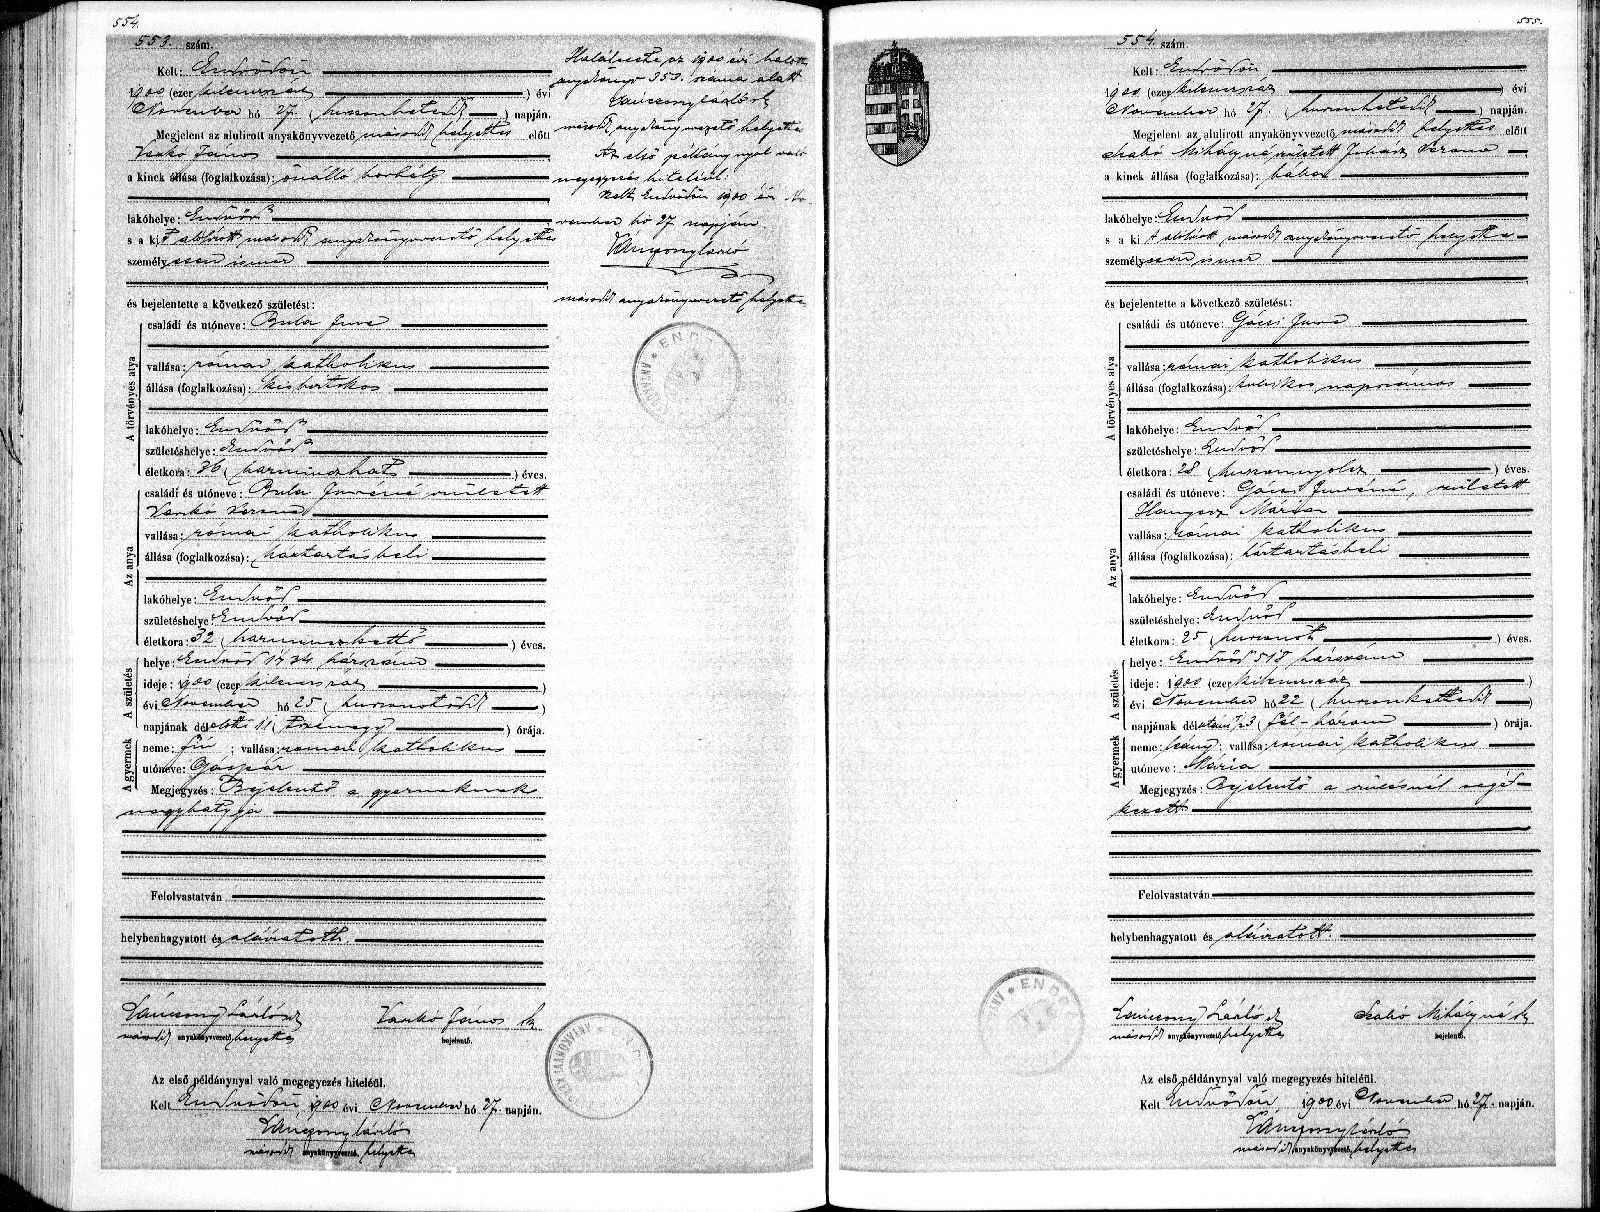 554.
553. szám.
Kelt: Endrődön
1900 (ezer kilenczszáz) évi
November hó 27. (huszonhetedik) napján.
Megjelent az alulirott anyakönyvvezető második helyettes előtt
Vaskó János
a kinek állása (foglalkozása): önálló
lakóhelye: Endrőd
s a kit alólírott második anyakönyvvezető helyettes
személyesen ismer
és bejelentette a következő születést:
A törvényes atya
családi és utóneve: Bula Imre
vallása: római katholikus
állása (foglalkozása): kisbirtokos
lakóhelye: Endrőd
születéshelye: Endrőd
életkora: 36 (harminczhat) éves.
Az anya
családi és utóneve: Bula Imréné született
Vaskó
vallása: római katholikus
állása (foglalkozása): háztartásbeli
lakóhelye: Endrőd
születéshelye: Endrőd
életkora: 32 (harminczkettő) éves.
A születés
helye: Endrőd 1734 házszám
ideje: 1900 (ezer kilenczszáz)
évi November hó 25 (huszonötödik)
napjának délelőtti 11 (tizenegy) órája.
A gyermek
neme: fiú; vallása: római katholikus
utóneve: Gáspár
Megjegyzés: Bejelentő a gyermeknek
nagybátyja
Felolvastatván
helybenhagyatott és aláíratott.
László sk Vaskó János sk
második anyakönyvvezető helyettes bejelentő.
Az első példánynyal való megegyezés hiteléül.
Kelt Endrődön 1900 évi November hó 27. napján.
László
második anyakönyvvezető helyettes
az 1900 évi halotti
anyakönyv 353. száma alatt
László sk
második anyakönyvvezető helyettes
Az első példánynyal való
megegyezés hiteléül.
Kelt Endrődön 1900 évi No-
vember hó 27 napján
László
második anyakönyvvezető helyettes
555.
554. szám.
Kelt: Endrődön
1900 (ezer kilenczszáz) évi
November hó 27. (huszonhetedik) napján.
Megjelent az alulirott anyakönyvvezető második helyettes előtt
Szabó Mihályné született Juhász
a kinek állása (foglalkozása): bába
lakóhelye: Endrőd
s a kit alólírott második anyakönyvvezető helyettes
személyesen ismer
és bejelentette a következő születést:
A törvényes atya
családi és utóneve: Gócsi Imre
vallása: római katholikus
állása (foglalkozása): kubikos napszámos
lakóhelye: Endrőd
születéshelye: Endrőd
életkora: 28 (huszonnyolcz) éves.
Az anya
családi és utóneve: Gócsi Imréné, született
Hangya Mária
vallása: római katholikus
állása (foglalkozása): háztartásbeli
lakóhelye: Endrőd
születéshelye: Endrőd
életkora: 25 (huszonöt) éves.
A születés
helye: Endrőd 518 házszám
ideje: 1900 (ezer kilenczszáz)
évi November hó 22 (huszonkettedik)
napjának délutáni 1/2 3 (fél-három) órája.
A gyermek
neme: leány; vallása: római katholikus
utóneve: Mária
Megjegyzés: Bejelentő a szülésnél segéd-
kezett
Felolvastatván
helybenhagyatott és aláíratott.
László sk Szabó Mihályné sk
második anyakönyvvezető helyettes bejelentő.
Az első példánynyal való megegyezés hiteléül.
Kelt Endrődön 1900 évi November hó 27. napján.
László
második anyakönyvvezető helyettes